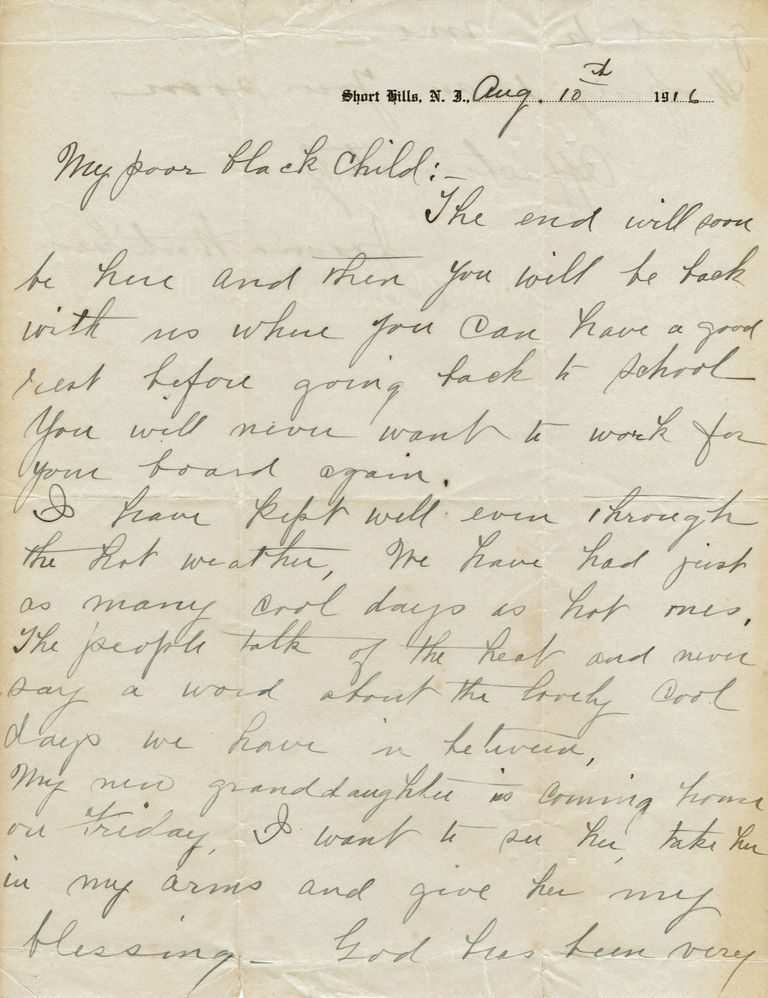 Short Hills, N. J., Aug. 10th 1916
My poor black Child:-
The end will soon
be here and then you will be back
with us where you can have a good
rest before going back to school
You will never want to work for
your board again.
I have kept well even through
the hot weather, We have had just
as many cool days as hot ones.
The people talk of the heat and never
say a word about the lovely cool
days we have in between,
My new granddaughter is coming home
on Friday, I want to see her, take her
in my arms and give her my
blessing - God has been very